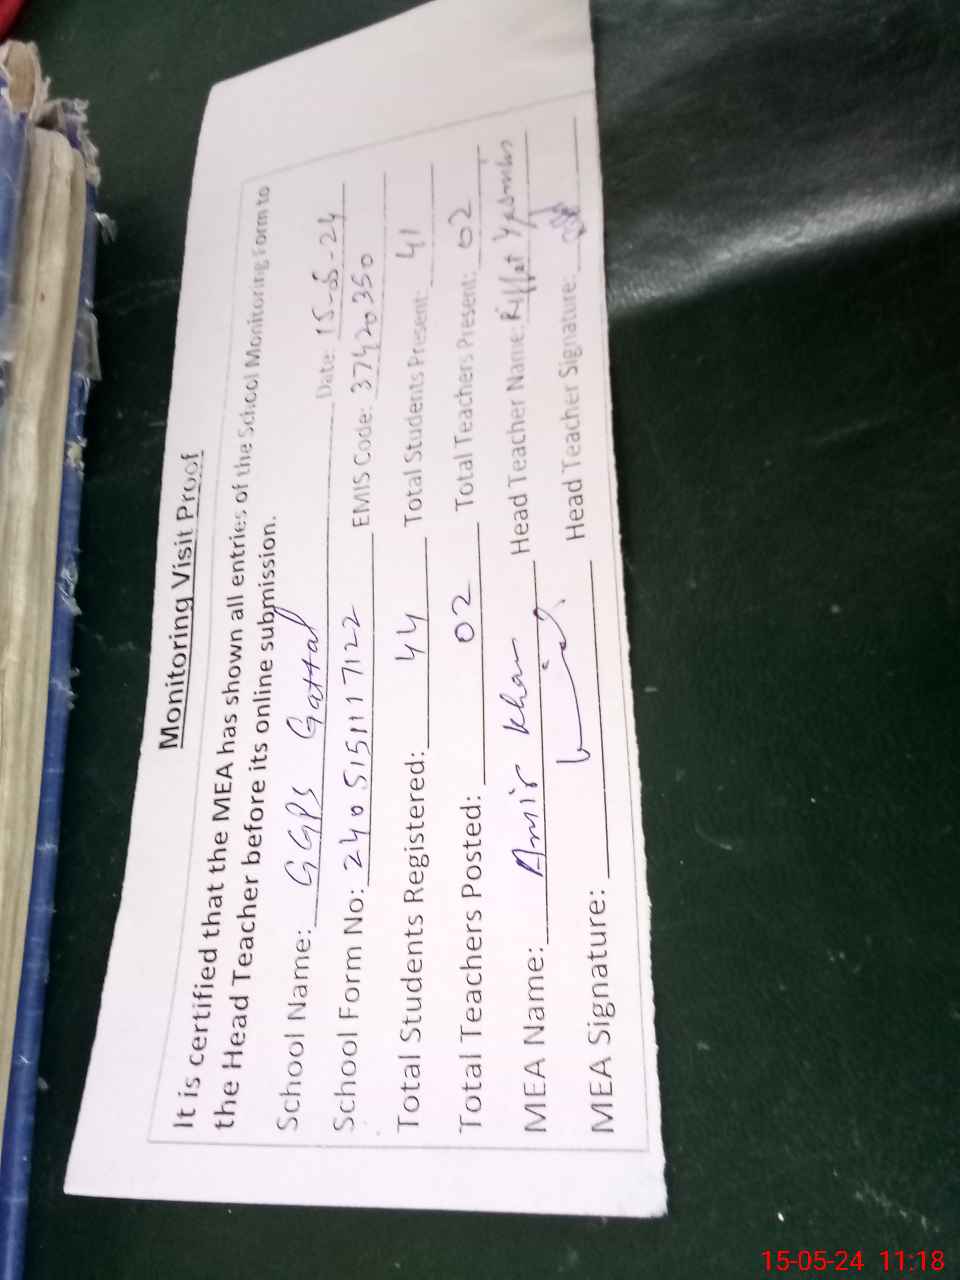 Monitoring Visit Proof
It is certified that the MEA has shown all entries of the School Monitoring Form to
the Head Teacher before its online submission.
School Name: GGPS Gattal Date: 15-05-24
School Form No: 2405151117122 EMIS Code: 37420350
Total Students Registered: 44 Total Students Present: 41
Total Teachers Posted: 02 Total Teachers Present: 02
MEA Name: Amir Khan Head Teacher Name: Riffat
MEA Signature: Head Teacher Signature:
15-05-24 11:18